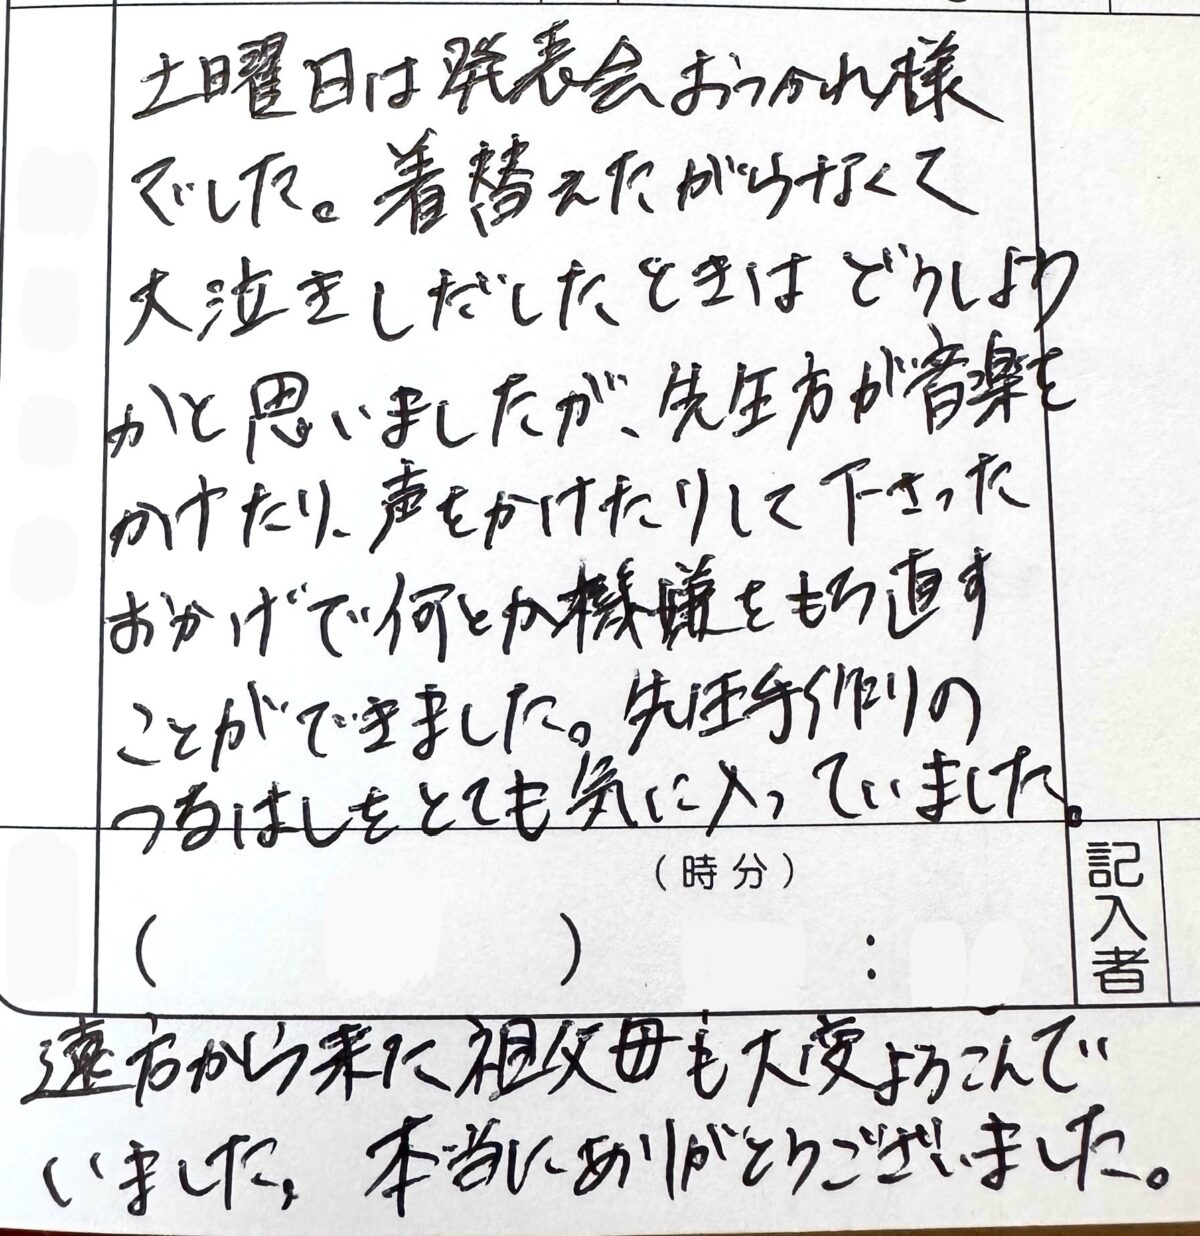 土曜日は発表会おつかれ様
でした。着替えたがらなくて
大泣きしだしたときはどうしよう
かと思いましたが、先生方が音楽を
かけたり、声をかけたりして下さった
おかげで何とか機嫌をもち直す
ことができました。先生手作りの
つるはしをとても気に入っていました。
(時分)
( ) :
記入者
遠方から来た祖父母も大変よろこんで
いました。本当にありがとうございました。